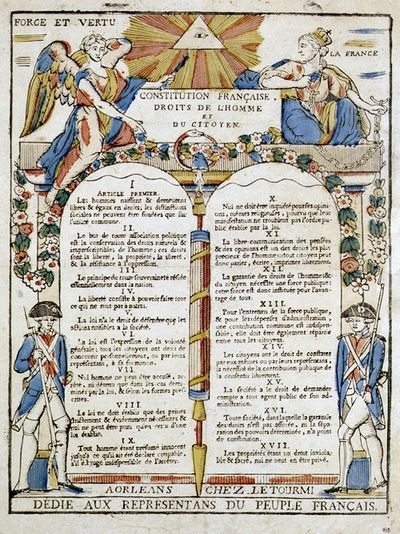 FORCE ET VERTU
LA FRANCE
CONSTITUTION FRANÇAISE,
DROITS DE L'HOMME
ET
DU CITOYEN.
I
ARTICLE PREMIER.
Les hommes naissent & demeurent
libres & égaux en droits; les distinctions
sociales ne peuvent être fondées que sur
l'utilité commune.
II.
Le but de toute association politique
est la conservation des droits naturels &
imprescriptibles de l'homme; ces droits
sont la liberté, la propriété, la sûreté,
& la résistance à l'oppression.
III.
Le principe de toute souveraineté réside
essenciellement dans la nation.
IV.
La liberté consiste à pouvoir faire tout
ce qui ne nuit pas à autrui.
V.
La loi n'a le droit de défendre que les
actions nuisibles à la société.
VI.
La loi est l'expression de la volonté
générale; tous les citoyens ont droit de
concourir personnellement, ou par leurs
représentans, à sa formation.
VII.
Nul homme ne peut être accusé, ar-
rêté, ni détenu que dans les cas déter-
minés par la loi, & selon les formes pres-
crites.
VIII.
La loi ne doit établir que des peines
strictement & évidemment nécessaires &
nul ne peut être puni qu'en vertu d'une
loi établie.
IX.
Tout homme étant présumé innocent
jusqu'à ce qu'il ait été déclaré coupable,
s'il est jugé indispensable de l'arrêter.
X.
Nul ne doit être inquiété pour ses opini-
ons, mêmes religieuses, pourvu que leur
manifestation ne troublent pas l'ordre pu-
blic établie par la loi.
XI.
La libre communication des pensées
& des opinions est un des droits les plus
précieux de l'homme: tout citoyen peut
donc parler, écrire, imprimer librement.
XII.
La garantie des droits de l'homme &
du citoyen nécessite une force publique:
cette force est donc instituée pour l'avan-
tage de tous.
XIII.
Pour l'entretien de la force publique,
& pour les dépenses d'administration
une contribution commune est indispen-
sable; elle doit être également répartie
entre tous les citoyens.
XIV.
Les citoyens ont le droit de constater
par eux-mêmes ou par leurs représentans,
la nécessité de la contribution publique &
la consentir librement.
XV.
La société a le droit de demander
compte à tout agent public de son ad-
ministration.
XVI.
Toute société, dans laquelle la garantie
des droits n'est pas assurée, ni la sépa-
ration des pouvoirs déterminée, n'a point
de constitution.
XVII.
Les propriétés étant un droit inviola-
ble & sacré, nul ne peut en être privé.
A ORLEANS CHEZ LETOURMI
DEDIE AUX REPRESENTANS DU PEUPLE FRANÇAIS.